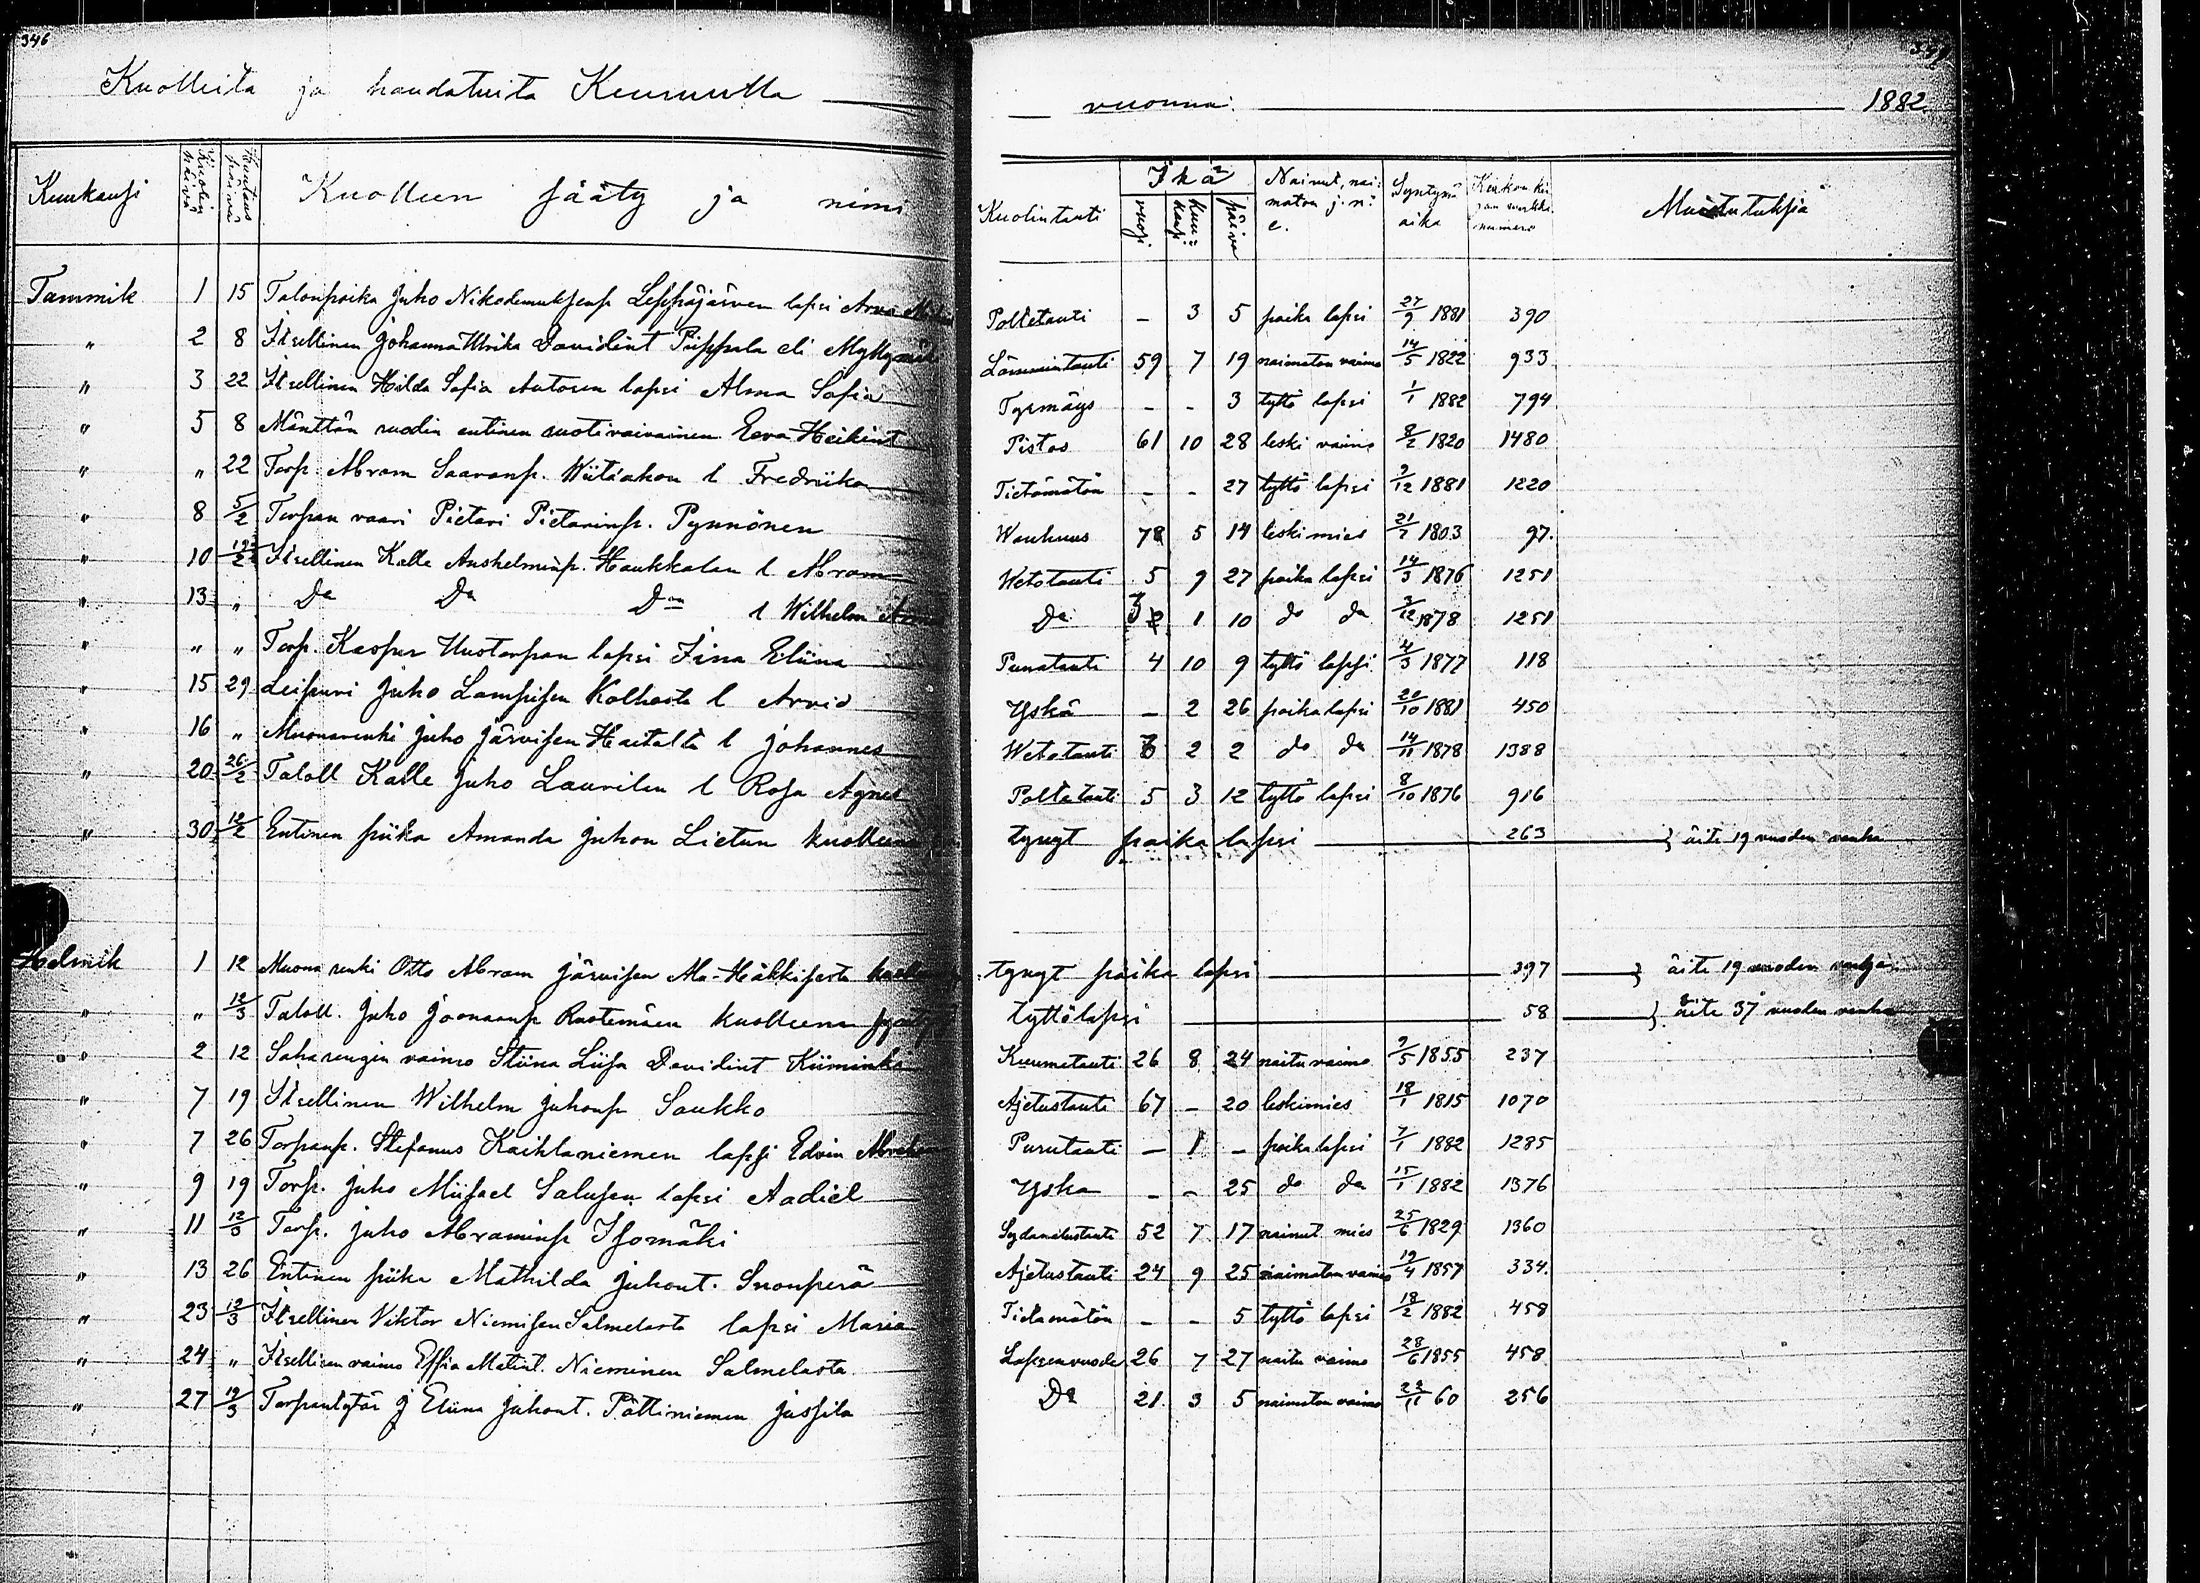 346
Kuolleita ja haudatuita Keuruulla vuonna: 1882
Kuukausi Kuolin päivä Hautaus päivä Kuolleen sääty ja nimi Kuolintauti Ikä vuosi kuukausi päivä Nainut, naimaton j. n. e. Syntymä aika Kirkon kirjan numero Muistutuksia
Tammik 1 15 Talonpoika Juho Nikodemuksenp Leppäjärven lapsi Arvo Poltetauti – 3 5 poika lapsi 27/9 1881 390
" 2 8 Itsellinen Johanna Ulrika Davidint Piippala eli Lämmintauti 59 7 19 naimaton vaimo 14/5 1822 933
" 3 22 Itsellinen Hilda Sofia Autosen lapsi Alma Sofia Tyrmäys - - 3 tyttö lapsi 1/1 1882 794
" 5 8 Mänttän ruodin entinen ruotivaivainen Eeva Heikint Pistos 61 10 28 leski vaimo 8/2 1820 1480
" " 22 Torp. Abram Saaranp. Wiitaahon l Fredriika Tietämätön - - 27 tyttö lapsi 9/12 1881 1220
" 8 5/2 Torpan vaari Pietari Pietarinp. Pynnönen Wanhuus 78 5 14 leskimies 21/7 1803 97.
" 10 12/2 Itsellinen Kalle Anshelminp. Haukkalan l Abram Wetotauti 5 9 27 poika lapsi 14/3 1876 1251
" 13 " Do Do Don l Wilhelm Do 3 1 10 do do 3/12 1878 1251
" " " Torp. Kaspur Uustorpan lapsi Fina Eliina Punatauti 4 10 9 tyttö lapsi 4/3 1877 118
" 15 29 Leipuri Juho Lampisen Kolhosta l Arvid Yskä – 2 26 poika lapsi 20/10 1881 450
" 16 " Muonarenki Juho Järvisen l Johannes Wetotauti 3 2 2 do do 14/11 1878 1388
" 20 26/2 Taloll Kalle Juho Laurilan l Rosa Agnes Poltetauti 5 3 12 tyttö lapsi 8/10 1876 916
" 30 12/2 Entinen piika Amanda Juhon Lietun kuolleena tynyt poika lapsi 263 } äite 19 vuoden vanha
Helmik 1 12 Muona renki Otto Abram Järvisen Ala-Häkkisestä tynyt poika lapsi 397 } äite 19 vuoden vanha
" " 12/3 Taloll. Juho Joonaanp kuolleena tyttölapsi 58 } äite 37 vuoden vanha
" 2 12 Saharengin vaimo Stiina Liisa Davidint Kuumetauti 26 8 24 naitu vaimo 9/5 1855 237
" 7 19 Itsellinen Wilhelm Juhonp Saukko Ajetustauti 67 – 20 leskimies 18/1 1815 1070
" 7 26 Torpanp. Stefanus Kaihlaniemen lapsi Edvin Purutauti – 1 – poika lapsi 7/1 1882 1285
" 9 19 Torp. Juho Miisael Salusen lapsi Aadiel Yska - - 25 do do 15/1 1882 1376
" 11 12/3 Torp. Juho Abraminp Isomäki 52 7 17 nainut mies 25/6 1829 1360
" 13 26 Entinen piika Mathilda Juhont. Suonperä Ajetustauti 24 9 25 naimaton vaimo 19/4 1857 334.
" 23 12/3 Itsellinen Viktor Niemisen Salmelasta lapsi Maria Tietamätön - - 5 tyttö lapsi 18/2 1882 458
" 24 " Itsellisen vaimo Effia Matint. Nieminen Salmelasta. Lapsenvuode 26 7 27 naitu vaimo 28/6 1855 458
" 27 12/3 Torpantytär J Eliina Juhont. Pättiniemen Jussila Do 21. 3 5 naimaton vaimo 22/11 60 256